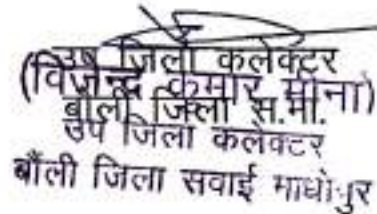 उप जिला कलेक्टर
(विजेन्द्र कुमार मीना)
बौंली जिला स.मा.
उप जिला कलेक्टर
बौंली जिला सवाई माधोपुर